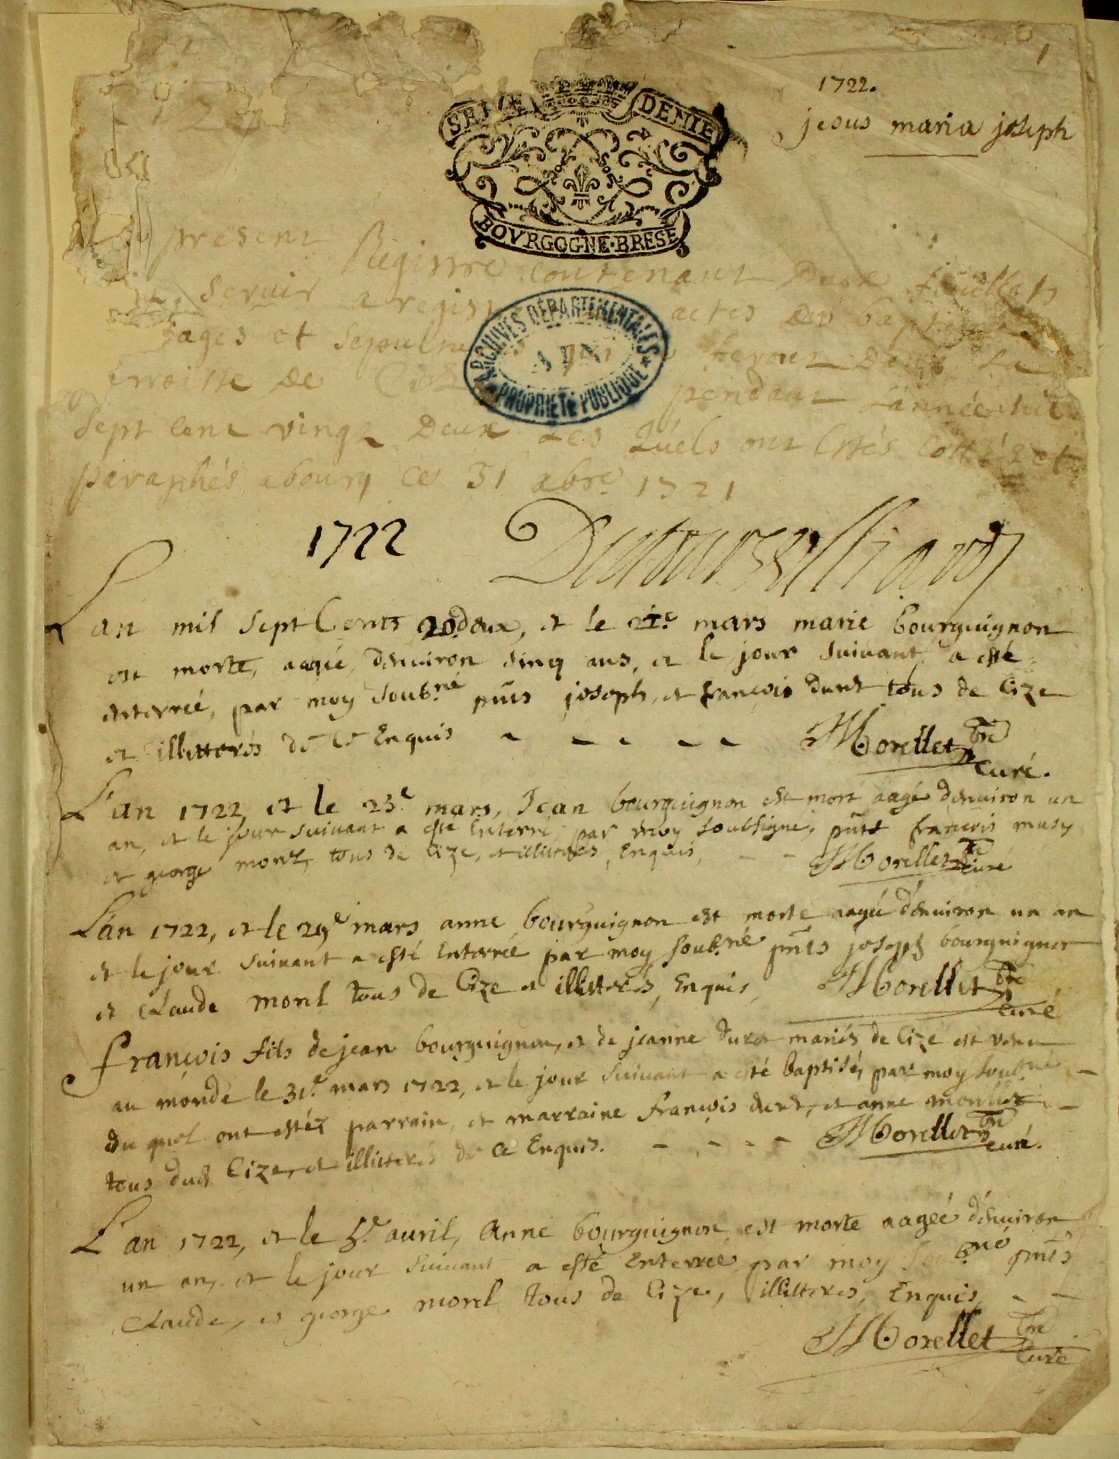 1
1722.
jesus maria joseph
SEIZE DENIE
BOVRGOGNE·BRESE
present Registre contenant Deux feuillets
servir a regist actes des bap
iages et sepultures
ARCHIVES DÉPARTEMENTALES
AIN
PROPRIÉTÉ PUBLIQUE
roisse De pendant L'année mil
Sept Cent vingt Deux Les Quels ont Estés Cottés et
paraphés a bourg ce 31 xbre 1721
1722
L'an mil sept Cents 20 deux, et le 21e mars marie bourguignon
est morte, aagée d'environ sinq ans, et le jour suivant a esté
enterrée, par moy soubné pñts joseph, et françois dund tous de Cize
et illitterés de ce Enquis - - - - - Morellet ptre
curé.
L'an 1722, et le 23e mars, Jean bourguignon est mort aagé d'environ un
an, et le jour suivant a esté Enterré, par moy soubsigné, pñts françois musy
et george monl, tous de Cize, et illitterés, Enquis, - - Morellet ptre
curé
L'an 1722, et le 29e mars anne bourguignon est morte aagée d'environ un an
et le jour suivant a esté Enterrée par moy soub.né pñts joseph bourguignon
et Claude monl tous de Cize et illitterés, Enquis, Morellet ptre
curé
françois fils de jean bourguignon, et de jeanne mariés de Cize est venu
au monde le 31e mars 1722, et le jour suivant a esté baptisé, par moy soubné -
du quel ont estéz parrain, et marraine françois dund, et anne -
tous dud Cize, et illitterés de ce Enquis. - - - - Morellet ptre
curé.
L'an 1722, et le 5e avril, Anne bourguignon, est morte aageé d'environ
un an, et le jour suivant a esté Enterrée par moy soubné pñts
Claude, et george monl tous de Cize, illitterés, Enquis, - -
Morellet ptre
Curé